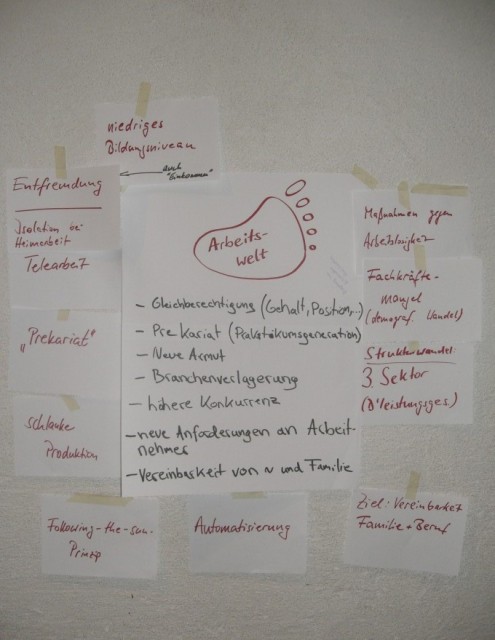 niedriges
Bildungsniveau
auch
"Einkommen"
Entfremdung
Isolation bei
Heimarbeit
Telearbeit
"Prekariat"
schlanke
Produktion
Arbeits-
welt
- Gleichberechtigung (Gehalt, Position,...)
- Prekariat (Praktikumsgeneration)
- Neue Armut
- Branchenverlagerung
- höhere Konkurrenz
- neue Anforderungen an Arbeit-
nehmer
- Vereinbarkeit von ~ und Familie
Maßnahmen gegen
Arbeitslosigkeit
Fachkräfte-
mangel
(demograf. Wandel)
Strukturwandel:
3. Sektor
(D'leistungsges.)
Following-the-sun-
Prinzip
Automatisierung
Ziel: Vereinbarkeit
Familie + Beruf